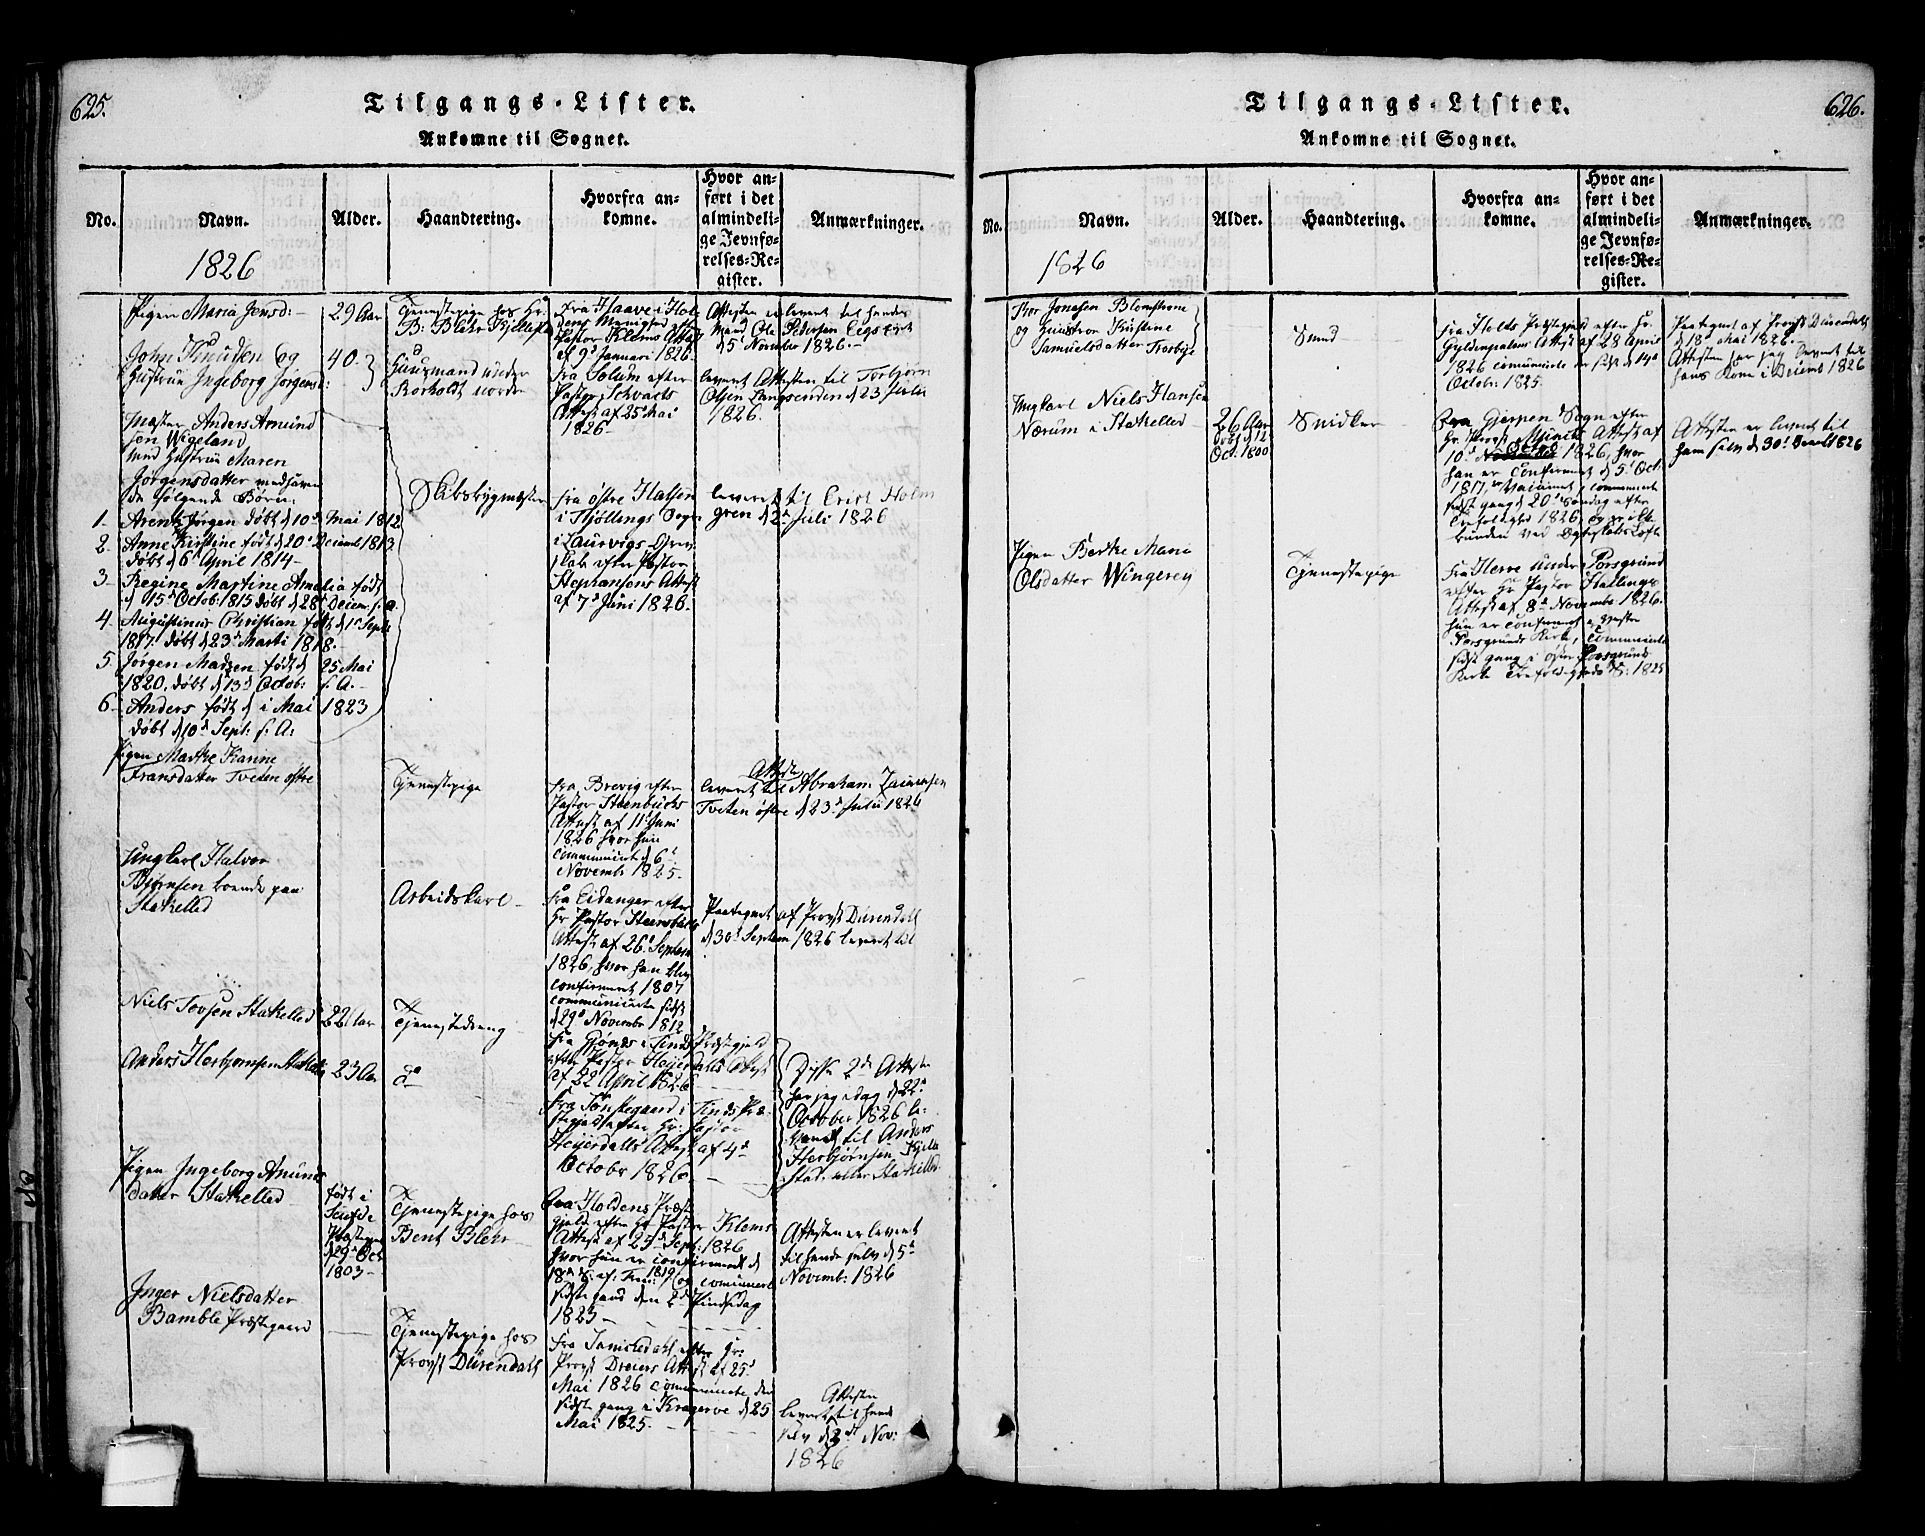 625.
Tilgangs-Lister.
Ankomne til Sognet.
No.
Navn.
1826
Alder.
Haandtering.
Hvorfra an-
komne.
Hvor an-
ført i det
almindeli-
ge Jevnfø-
relses-Re-
gister.
Anmærkninger.
Pigen Maria Jensd:
29 Aar
Tjenestepige hos Hr.
B: Blehr
Fra Haave i Hol
dens Menighed efter
Pastor Klems Attest
af 9d Januari 1826.
Attesten er leveret til hendes
Mand Ole Pedersen
d 5t November 1826.
Johne Knudsen Og
Hustrue Ingeborg Jørgensd:
40.
Huusmand under
Rorholdt nordre
fra Solum efter
Pastor Schvachs
Attest af 25 Mai
1826
leveret Attesten til Torbjørn
Olsen Langsenden d 23d Julii
1826.
Mæster Anders Amund
sen Wigeland
med Hustrue Maren
Jørgensdatter medhavende
de følgende Børn:
Skibsbygmæster
fra østre Halsen
i Tjøllings Sogn
i Laurvigs Grev
skab efter Pastor
Stephansons Attest
af 7d Juni 1826.
leveret til Erich Holm
gren d 2d Juli 1826
1. Arent Jørgen døbt d 10d Mai 1812
2. Anne Kirstine født d 20d Decemb 1813
døbt d 6t April 1814
3. Regine Martine Amalia født
d 15d Octob: 1815 døbt d 28d Decem: s. a.
4. Augustinus Christian født d 1t Sept:
1817. døbt d 23d Marti 1818.
5. Jørgen Madsen født d 25 Mai
1820, døbt d 13d Octob: s. A.
6. Anders født d i Mai 1823
døbt d 10d Sept: s: A:
Pigen Marthe Karine
Fransdatter Tveten østre
Tjenestepige
fra Brevig efter
Pastor Steenbuchs
Attest af 11t Juni
1826 hvor hun
communicert d 6t
Novembr 1825.
Attest
leveret til Abraham
Tveten østre d 23d Julii 1826
Ungkarl Halvor
Bjørnsen boende paa
Stathelled
Arbeidskarl
fra Eidanger efter
Hr Pastor Steenbuchs
Attest af 26d Septem
1826, hvor han blev
confirmeret 1807
communicerte sidst
d 29d Novembr 1812
Paategnet af Provst Dürendahl
d 30d Septem 1826 leveret til
Niels Tovsen Stathelled
22 Aar
Tjenestedreng
fra Gjøndø i Tinds Præstegjeld
efter Pastor Heijerdalls Attest
af 22 April 1826
Anders Herbjørnsen Stathelle
23 Aar
do
fra Sønstegaard i Tinds Præ
stegjeld efter Hr: Pastor
Heijerdalls Attest af 4d
October 1826
Disse 2de Attester
har jeg i dag d 22d
October 1826 le:
veret til Anders
Herbjørnsen
Stad. eller Stathelled.
Pigen Ingeborg Amunds
datter Stathelled
født i
d 29d Oct
1803
Tjenestepige hos
Bent Blehr
fra Holdens Præste
gjeld efter Hr Pastor Klems
Attest af 25d Sept: 1826
hvor hun er confirmeret d
18d S. af. Trin: 1819 og comunicert
sidste gang den 2d Pindsedag
1823
Attesten er leveret
til hende selv d 5d
Novemb: 1826
Inger Nielsdatter
Bamble Præstegaard
Tjenestepige hos
Provst Dürendahl
fra Sannikedahl efter Hr:
Provst Dreiers Attest af 25d
Mai 1826 comunicerte den
sidste gang i Kragerøe d 25
Mai 1825.
Attesten
leveret til hende
selv d 2d Nov:
1826
626.
Tilgangs-Lister.
Ankomne til Sognet.
No.
Navn.
1826
Alder.
Haandtering.
Hvorfra an-
komne.
Hvor an-
ført i det
almindeli-
ge Jevnfø-
relses-Re-
gister.
Anmærkninger.
Thor Jonasen Blomstrom
og Hustroe Kirstine
Samuelsdatter Trosbye
Smed
fra Holts Præstegjeld efter Hr.
Gyldenpalms Attest af 28 April
1826 comunicerte sidst d 14d
Octob: 1825.
Paategnet af Provst Dürendahl
d 18d Mai 1826.
Attesten har jeg leveret til
hans Kone i Decemb 1826
Ungkarl Niels Hansen
Nærum i Stathelled
26 Aar
født d 12
Oct: 1800
Snidker
fra Gjerpen Sogn efter
Hr. Provst Muncks Attest af
10d Octob 1826, hvor
han er confirmeret d 5d Oct:
1817, Vaccineret, communicert
sidste gang d 20d Søndag efter
Trefoldighed 1826, og
Attesten er leveret til
ham selv d 30d Decemb 1826
Pigen Berthe Maria
Olsdatter Wingerey
Tjenestepige
fra Herre under Porsgrund
efter Hr Pastor Hallings
Attest af 8d Novembr 1826.
hun er confirmert i Vestre
Porsgrunds Kirke, communicerte
sidste gang i østre Porsgrunds
Kirke 1825